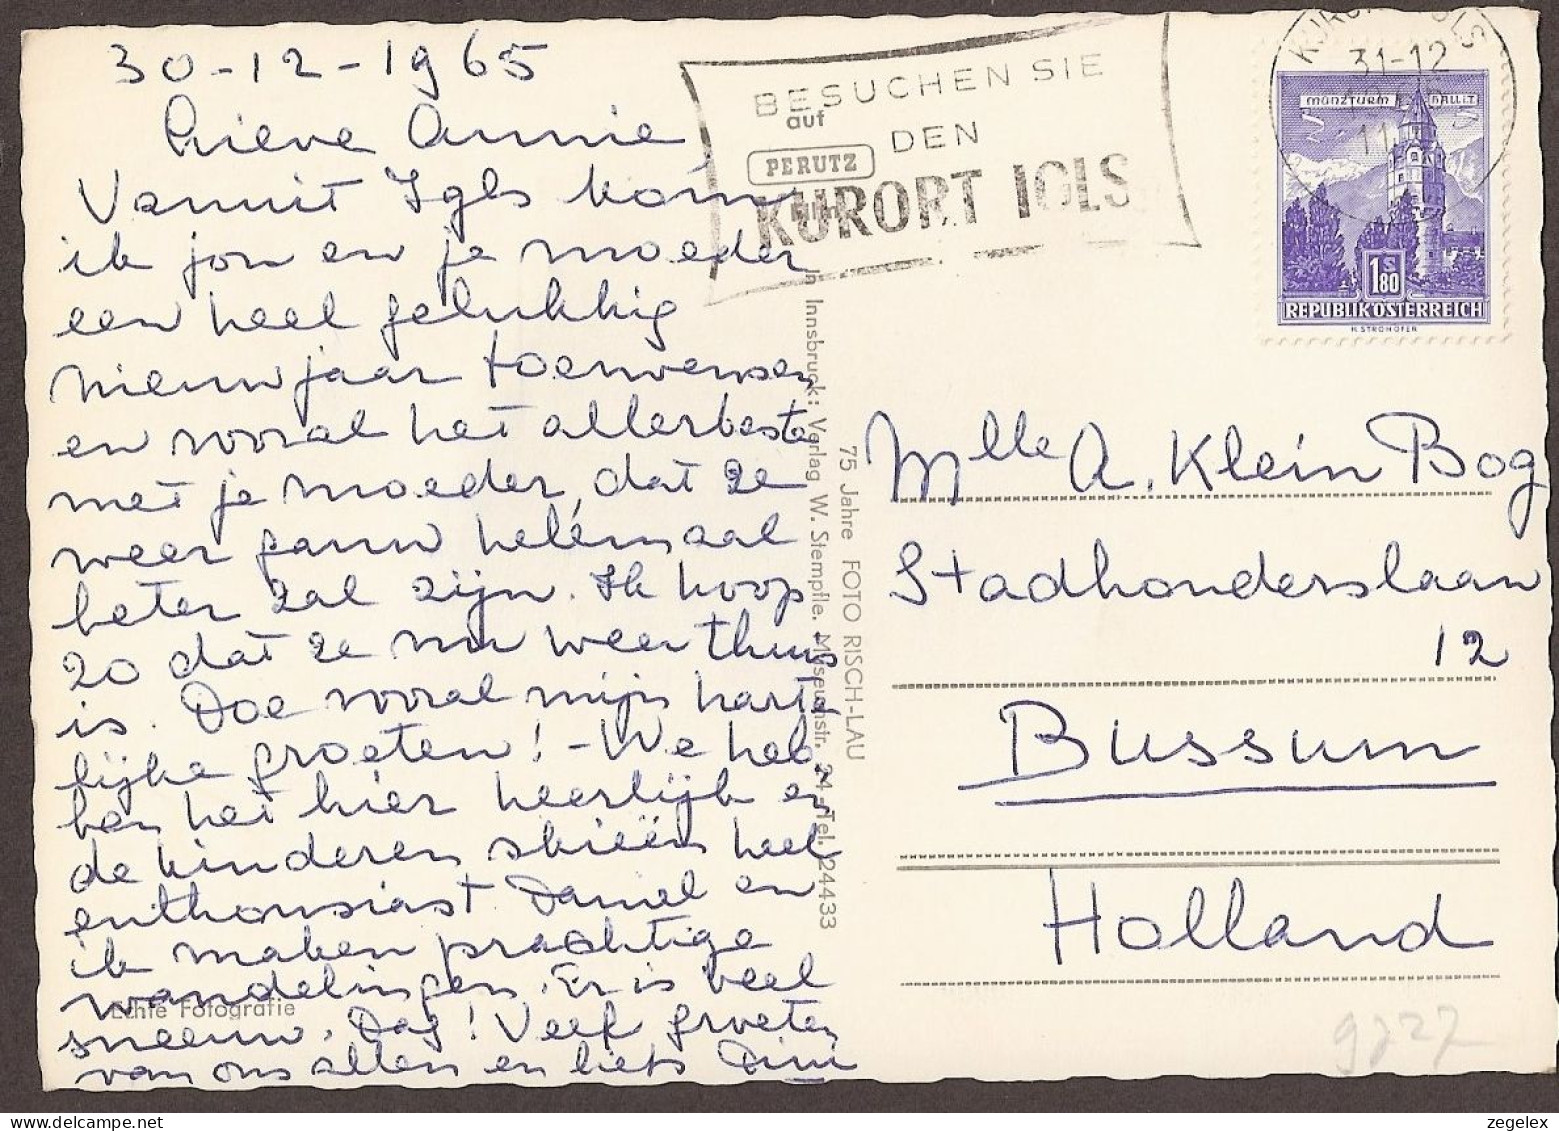 30-12-1965
Lieve Annie,
Vanuit Igls kom
ik jou en je moeder
een heel gelukkig
nieuwjaar toewensen
en vooral het allerbeste
met je moeder, dat ze
weer gauw helemaal
beter zal zijn. Ik hoop
zo dat ze nu weer thuis
is. Doe vooral mijn harte
lijke groeten! - We heb
ben het hier heerlijk en
de kinderen skieën heel
enthousiast. Daniel en
ik maken prachtige
wandelingen. Er is veel
sneeuw. Dag! Veel groeten
van ons allen en liefs Dini
Echte Fotografie
BESUCHEN SIE
DEN
KURORT IGLS
auf
PERUTZ
Innsbruck: Verlag W. Stempfle. Museumstr. 24. Tel. 24433
75 Jahre FOTO RISCH-LAU
31-12
MÜNZTURM HALL I.T.
1 S 80
REPUBLIK ÖSTERREICH
H. STROHOFER
Mlle A. Klein Bog
Stadhonderslaan
12
Bussum
Holland
9727
zegelex